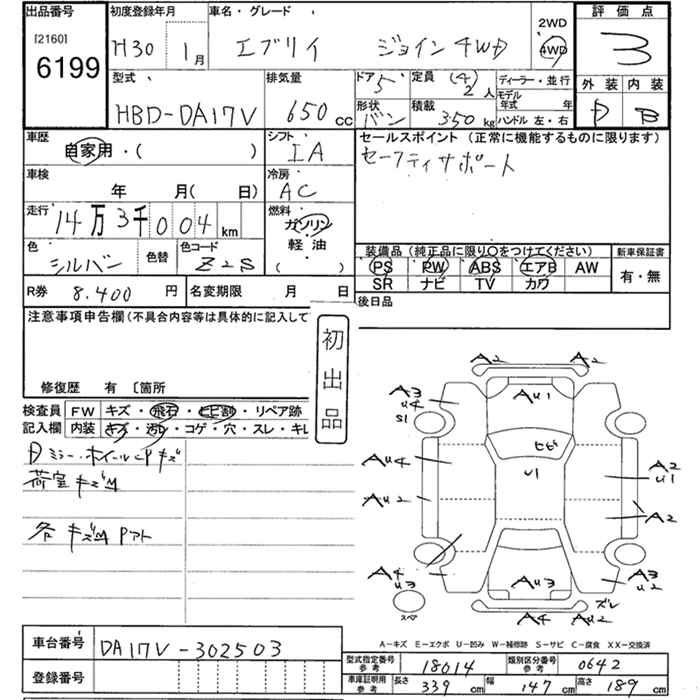 出品番号 初度登録年月 車名・グレード 2WD 評価点
[2160] 6199 H30 1月 エブリイ ジョイン 4WD 4WD 3
型式 排気量 ドア 5 定員 (4) 2人 ディーラー・並行 外装 内装
HBD-DA17V 650cc 形状 バン 積載 350kg モデル年式 年 ハンドル 左・右 D B
車歴 シフト セールスポイント(正常に機能するものに限ります)
自家用・( ) IA セーフティサポート
車検 年 月( 日) 冷房 AC
走行 14万3千004km 燃料 ガソリン
軽油
( )
色 シルバー 色替 色コード Z2S
装備品(純正品に限り○をつけてください) 新車保証書
PS PW ABS エアB AW 有・無
SR ナビ TV カワ
R券 8.400円 名変期限 月 日 後日品
注意事項申告欄(不具合内容等は具体的に記入して
初出品
修復歴 有 〔箇所
検査員 FW キズ・飛石・ヒビ割・リペア跡
記入欄 内装 キズ・汚れ・コゲ・穴・スレ・キレ
ミラー・ホイールCPキズ
荷室キズM
各キズM Pアト
A2 A2
A3 U4 S1 AU1
ヒビ
AU4 U1 A2 U1
AU2 A2
A4 U3 AU3 A3 U2
スペア A4 AU2 ズレ
A-キズ E-エクボ U-凹み W-補修跡 S-サビ C-腐食 XX-交換済
車台番号 DA17V-302503
登録番号
型式指定番号 参考 18014 類別区分番号 参考 0642
車庫証明用 参考 長さ 339cm 幅 147cm 高さ 189cm